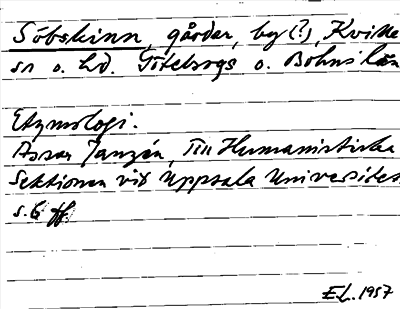 Sõbskinn, gårdar, by(?), Kville
sn o. hd. Göteborgs o. Bohus län
Etymologi.
Assar Janzén, Till Humanistiska
Sektionen vid Uppsala Universitet
s. 6 ff
E.L. 1957